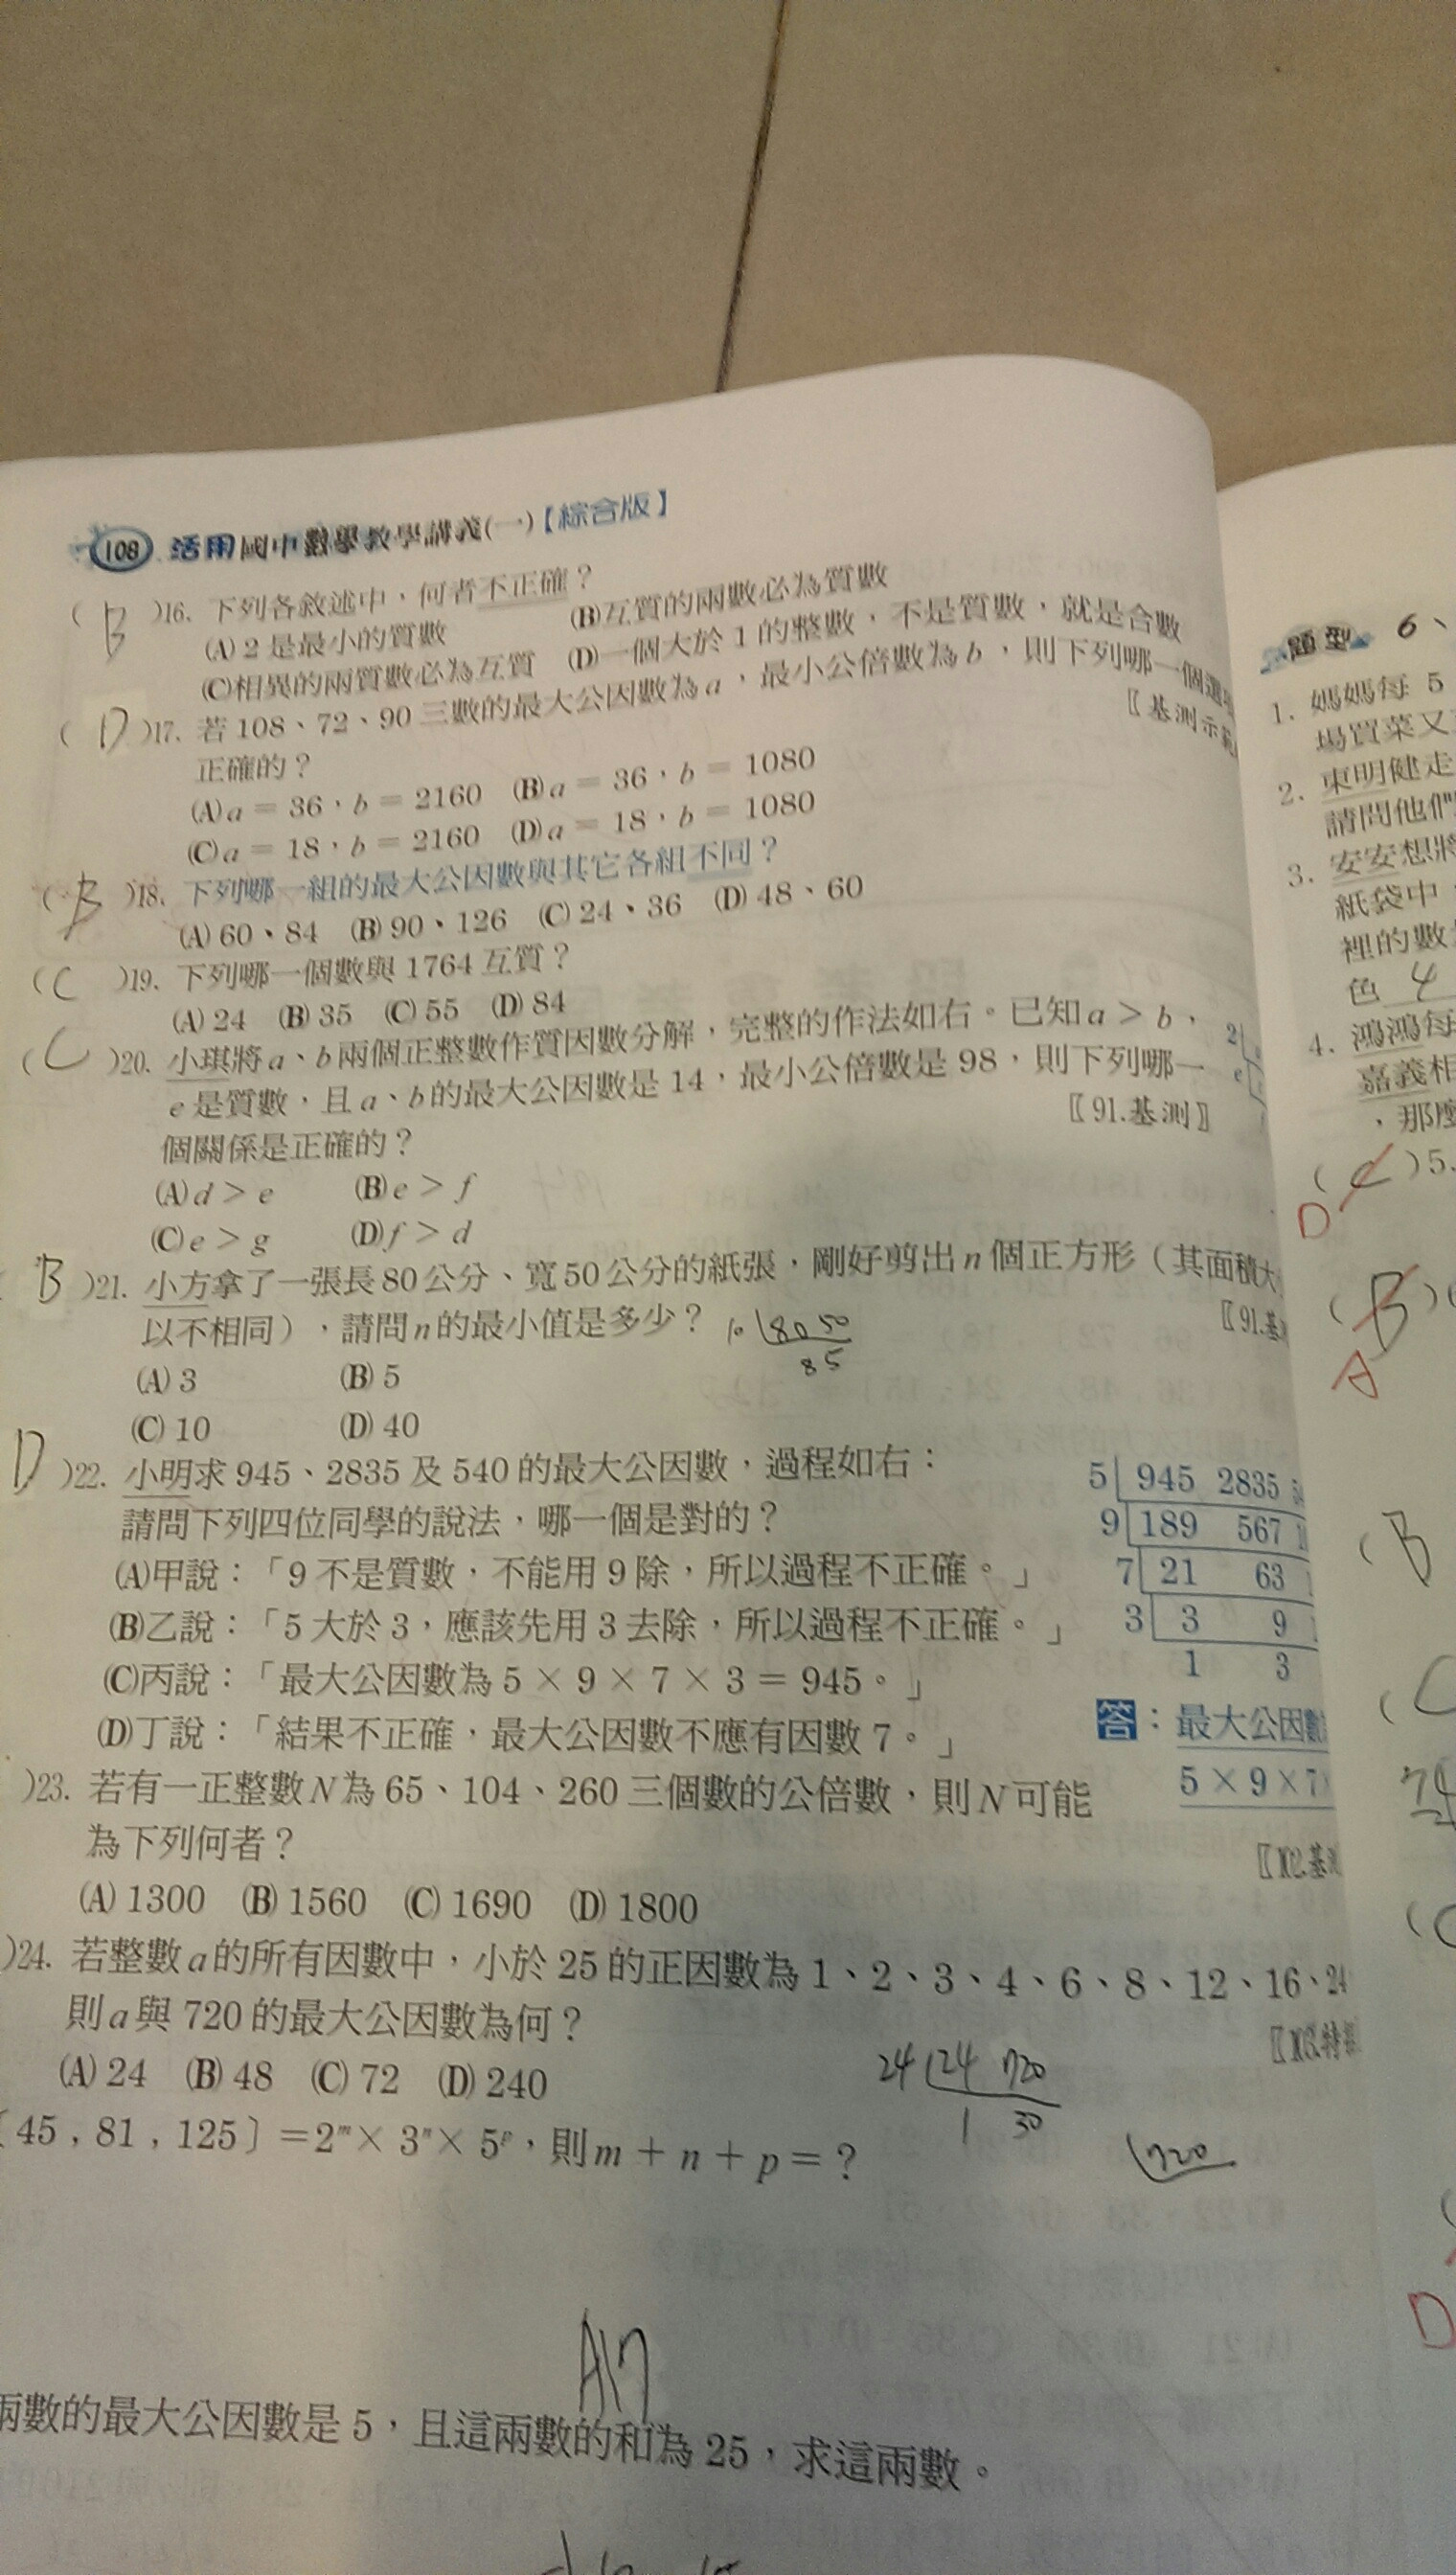 108 活用國中數學教學講義(一)【綜合版】
( B )16. 下列各敘述中，何者不正確？
(A) 2 是最小的質數 (B)互質的兩數必為質數
(C)相異的兩質數必為互質 (D)一個大於 1 的整數，不是質數，就是合數
( D )17. 若 108、72、90 三數的最大公因數為a，最小公倍數為b，則下列哪一個選項
正確的？ 〖基測示範
(A) a = 36，b = 2160 (B) a = 36，b = 1080
(C) a = 18，b = 2160 (D) a = 18，b = 1080
( B )18. 下列哪一組的最大公因數與其它各組不同？
(A) 60、84 (B) 90、126 (C) 24、36 (D) 48、60
( C )19. 下列哪一個數與 1764 互質？
(A) 24 (B) 35 (C) 55 (D) 84
( C )20. 小琪將a、b兩個正整數作質因數分解，完整的作法如右。已知a > b，
e是質數，且a、b的最大公因數是 14，最小公倍數是 98，則下列哪一
個關係是正確的？ 〖91.基測〗
(A) d > e (B) e > f
(C) e > g (D) f > d
2
e
B )21. 小方拿了一張長80公分、寬50公分的紙張，剛好剪出n個正方形（其面積大
以不相同），請問n的最小值是多少？ 〖91.基
10 80 50
8 5
(A) 3 (B) 5
(C) 10 (D) 40
D )22. 小明求 945、2835 及 540 的最大公因數，過程如右：
請問下列四位同學的說法，哪一個是對的？
(A)甲說：「9 不是質數，不能用 9 除，所以過程不正確。」
(B)乙說：「5 大於 3，應該先用 3 去除，所以過程不正確。」
(C)丙說：「最大公因數為 5 × 9 × 7 × 3 = 945。」
(D)丁說：「結果不正確，最大公因數不應有因數 7。」
5 945 2835
9 189 567
7 21 63
3 3 9
1 3
答：最大公因數
5 × 9 × 7
)23. 若有一正整數N為 65、104、260 三個數的公倍數，則N可能
為下列何者？ 〖102.基測
(A) 1300 (B) 1560 (C) 1690 (D) 1800
)24. 若整數a的所有因數中，小於 25 的正因數為 1、2、3、4、6、8、12、16、24
則a與 720 的最大公因數為何？ 〖103.特招
(A) 24 (B) 48 (C) 72 (D) 240
24 24 720
1 30
720
〔45，81，125〕= 2ᵐ × 3ⁿ × 5ᵖ，則m + n + p = ？
A17
兩數的最大公因數是 5，且這兩數的和為 25，求這兩數。
題型 6、
1. 媽媽每 5
場買菜又
2. 東明健走
請問他們
3. 安安想將
紙袋中
裡的數
色 4
4. 鴻鴻每
嘉義相
，那麼
( C )5.
D
( B )
A
( B
( C
( C
D